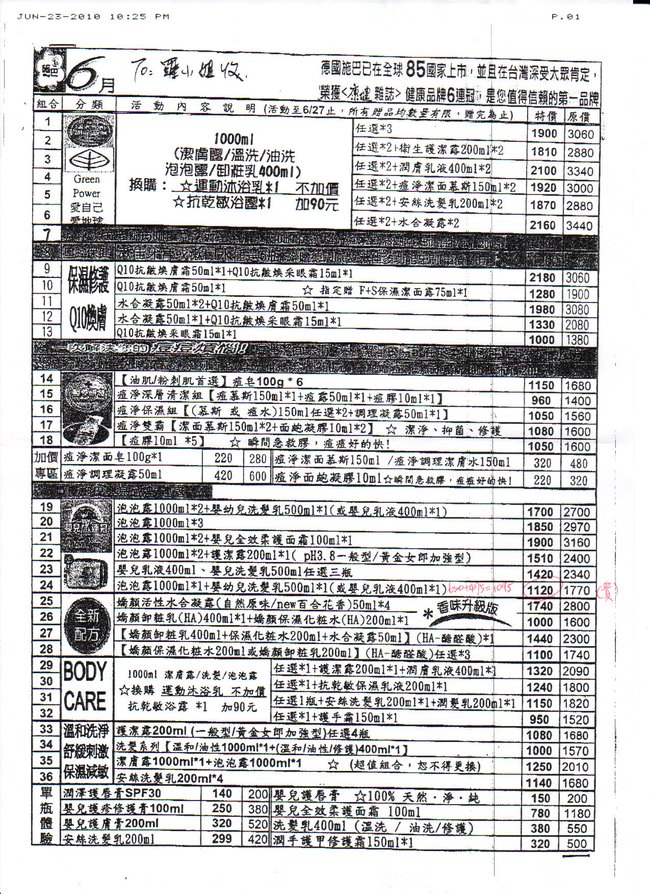 JUN-23-2010 10:25 PM P.01
6月
To: 羅小姐收
德國施巴已在全球85國家上市，並且在台灣深受大眾肯定，
榮獲<康健雜誌>健康品牌6連冠，是您值得信賴的第一品牌
組合 分類 活動內容說明 (活動至6/27止，所有贈品均數量有限，贈完為止) 特價 原價
1000ml
(潔膚露/溫洗/油洗
泡泡露/卸粧乳400ml)
換購：☆運動沐浴乳*1 不加價
☆抗乾敏浴露*1 加90元
Green
Power
愛自己
愛地球
1 任選*3 1900 3060
2 任選*2+衛生護潔露200ml*2 1810 2880
3 任選*2+潤膚乳液400ml*2 2100 3340
4 任選*2+痘淨潔面慕斯150ml*2 1920 3000
5 任選*2+安絲洗髮乳200ml*2 1870 2880
6 任選*2+水合凝露*2 2160 3440
7
保濕修護
Q10煥膚
9 Q10抗皺煥膚霜50ml*1+Q10抗皺煥采眼霜15ml*1 2180 3060
10 Q10抗皺煥膚霜50ml*1 ☆ 指定贈 F+S保濕潔面露75ml*1 1280 1900
11 水合凝露50ml*2+Q10抗皺煥膚霜50ml*1 1980 3080
12 水合凝露50ml*1+Q10抗皺煥采眼霜15ml*1 1330 2080
13 Q10抗皺煥采眼霜15ml*1 1000 1380
14 【油肌/粉刺肌首選】痘皂100g * 6 1150 1680
15 痘淨深層清潔組【痘慕斯150ml*1+痘露50ml*1+痘膠10ml*1】 960 1400
16 痘淨保濕組【(慕斯 或 痘水)150ml任選*2+調理凝露50ml*1】 1050 1560
17 痘淨雙霸【潔面慕斯150ml*2+面皰凝膠10ml*2】 ☆ 潔淨、抑菌、修護 1080 1600
18 【痘膠10ml *5】 ☆ 瞬間急救膠，痘痘好的快! 1050 1600
加價 痘淨潔面皂100g*1 220 280 痘淨潔面慕斯150ml /痘淨調理潔膚水150ml 320 480
專區 痘淨調理凝露50ml 420 600 痘淨面皰凝膠10ml☆瞬間急救膠，痘痘好的快! 220 320
19 泡泡露1000ml*2+嬰幼兒洗髮乳500ml*1(或嬰兒乳液400ml*1) 1700 2700
20 泡泡露1000ml*3 1850 2970
21 泡泡露1000ml*2+嬰兒全效柔護面霜100ml*1 1900 3160
22 泡泡露1000ml*2+護潔露200ml*1( pH3.8一般型/黃金女郎加強型) 1510 2400
23 嬰兒乳液400ml、嬰兒洗髮乳500ml任選三瓶 1420 2340
24 泡泡露1000ml*1+嬰幼兒洗髮乳500ml*1(或嬰兒乳液400ml*1) 1120 1770
全新
配方
25 嬌顏活性水合凝露(自然原味/new百合花香)50ml*4 1740 2800
* 香味升級版
26 嬌顏卸粧乳(HA)400ml*1+嬌顏保濕化粧水(HA)200ml*1 1000 1600
27 【嬌顏卸粧乳400ml+保濕化粧水200ml+水合凝露50ml】(HA-醣醛酸)*1 1440 2300
28 【嬌顏保濕化粧水200ml或嬌顏卸粧乳200ml】(HA-醣醛酸)任選*3 1100 1740
BODY
CARE
1000ml 潔膚露/洗髮/泡泡露
☆換購 運動沐浴乳 不加價
抗乾敏浴露 *1 加90元
29 任選*1+護潔露200ml*1+潤膚乳液400ml*1 1320 2090
30 任選*1+抗乾敏保濕乳液200ml*1 1240 1800
31 任選1瓶+安絲洗髮乳200ml*1+潤髮乳200ml*1 1150 1820
32 任選*1+護手霜150ml*1 950 1520
溫和洗淨
舒緩刺激
保濕減敏
33 護潔露200ml (一般型/黃金女郎加強型)任選4瓶 1080 1680
34 洗髮系列【溫和/油性1000ml*1+(溫和/油性/修護)400ml*1】 1000 1570
35 潔膚露1000ml*1+泡泡露1000ml*1 ☆ (超值組合，恕不得更換) 1250 2010
36 安絲洗髮乳200ml*4 1140 1680
單 潤澤護唇膏SPF30 140 200 嬰兒護唇膏 ☆100% 天然‧淨‧純 150 200
瓶 嬰兒護疹修護膏100ml 250 380 嬰兒全效柔護面霜 100ml 780 1180
體 嬰兒護膚膏200ml 320 520 洗髮乳400ml (溫洗 / 油洗/修護) 380 550
驗 安絲洗髮乳200ml 299 420 潤手護甲修護霜150ml*1 320 500